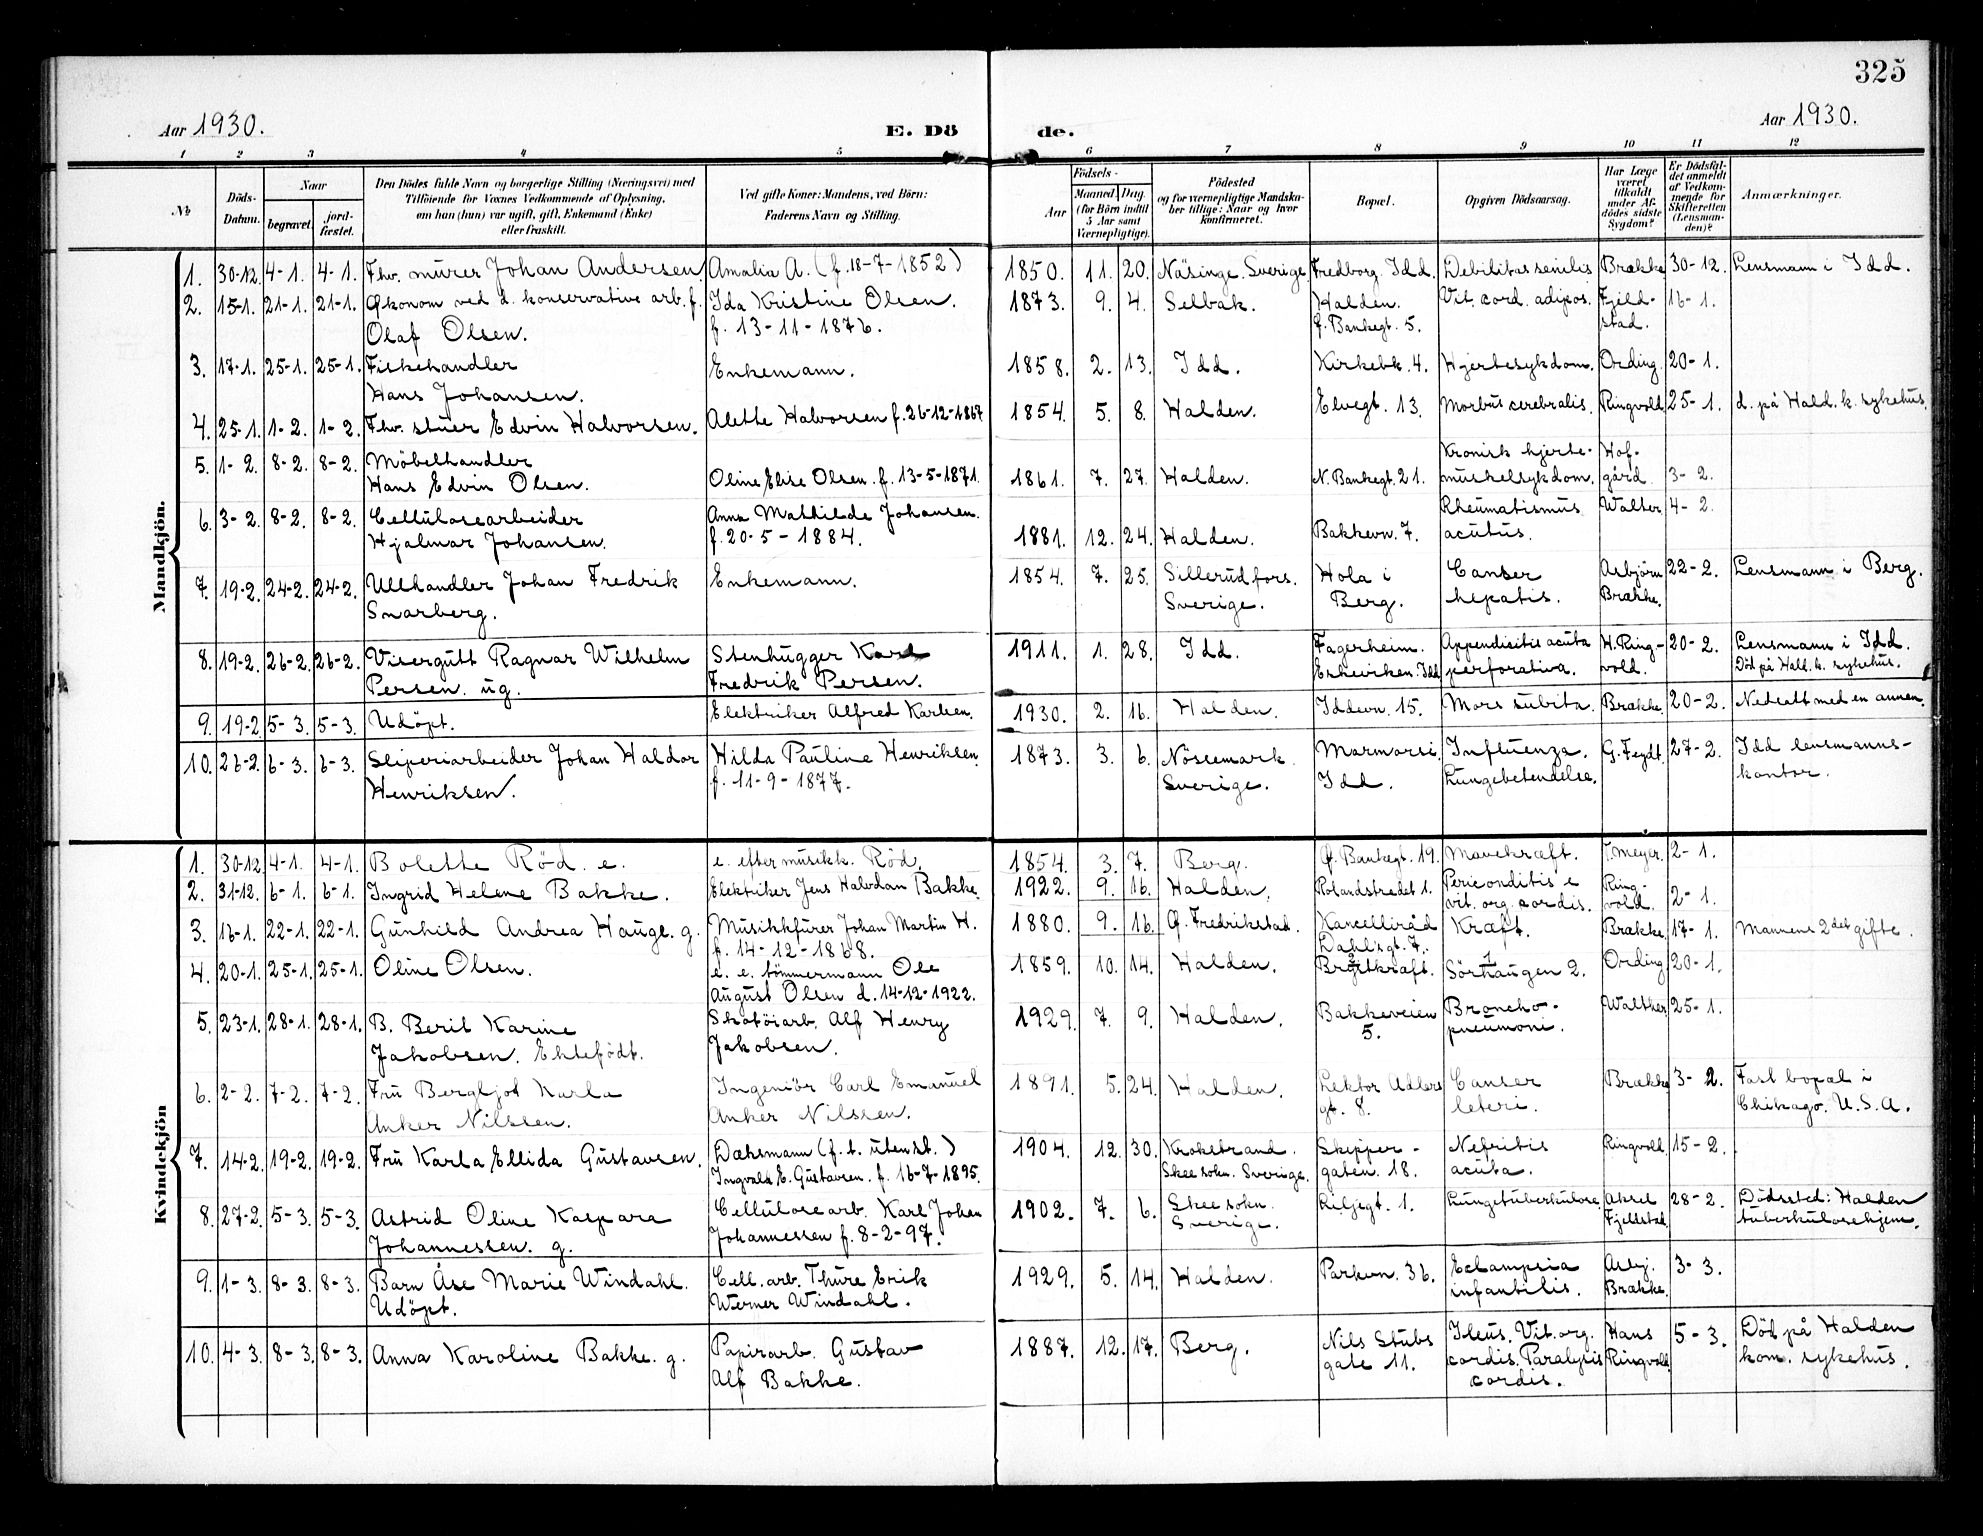 325
Aar 1930.
E. Dö de.
Aar 1930.
1 2 3 4 5 6 7 8 9 10 11 12
No
Döds-Datum.
Naar
begravet.
jord-fæstet.
Den Dödes fulde Navn og borgerlige Stilling (Næringsvei) med
Tilföiende for Voxnes Vedkommende af Oplysning,
om han (hun) var ugift, gift, Enkemand (Enke)
eller fraskilt.
Ved gifte Koner: Mandens, ved Börn:
Faderens Navn og Stilling.
Födsels-
Aar
Maaned. Dag.
(for Börn indtil
5 Aar samt
Værnepligtige).
Födested
og for værnepligtige Mandska-
ber tillige: Naar og hvor
Konfirmeret.
Bopæl.
Opgiven Dödsaarsag.
Har Læge
været
tilkaldt
under Af-
dödes sidste
Sygdom?
Er Dödsfal-
det anmeldt
af Vedkom-
mende for
Skifteretten
(Lensman-
den)?
Anmærkninger.
Mandkjön.
1. 30-12. 4-1. 4-1. Fhv. murer Johan Andersen Amalia A. (f. 18-7-1852) 1850. 11. 20. Näsinge. Sverige Fredborg. Idd. Debilitas senilis Brække 30-12. Lensmann i Idd.
2. 15-1. 21-1. 21-1. Økonom ved d. konservative arb. f. Ida Kristine Olsen. 1873. 9. 4. Selbak. Halden. Vit. cord. adipos. Fjeld- 16-1.
Olaf Olsen. f. 13-11-1876. Ø. Bankegt. 5. stad.
3. 17-1. 25-1. 25-1. Fiskehandler Enkemann. 1858. 2. 13. Idd. Kirkebk. 4. Hjertesykdom. Ording. 20-1.
Hans Johansen.
4. 25-1. 1-2. 1-2. Fhv. stuer Edvin Halvorsen. Alette Halvorsen f. 26-12-1867 1854. 5. 8. Halden. Elvegt. 13. Morbus cerebralis. Ringvold 25-1. d. på Hald. k. sykehus.
5. 1-2. 8-2. 8-2. Möbelhandler Kronisk hjerte- Hof-
Hans Edvin Olsen. Oline Elise Olsen. f. 13-5-1871. 1861. 7. 27. Halden. N. Bankegt. 21. muskelsykdom. gård. 3-2.
6. 3-2. 8-2. 8-2. Cellulosearbeider Anna Mathilde Johansen. Rheumatismus Walter 4-2.
Hjalmar Johansen. f. 20-5-1884. 1881. 12. 24. Halden. Bakkevn. 7. acutus.
7. 19-2. 24-2. 24-2. Ullhandler Johan Fredrik Enkemann. 1854. 7. 25. Sillerud fors. Hola i Canser Asbjörn 22-2. Lensmann i Berg.
Snarberg. Sverige. Berg. hepatis. Brække.
8. 19-2. 26-2. 26-2. Visergutt Ragnar Wilhelm Stenhugger Karl 1911. 1. 28. Idd. Fagerheim. Appendicitis acuta H. Ring- 20-2. Lensmann i Idd.
Persen. ug. Fredrik Persen. Eskeviken. Idd perforativa. vold. Död på Hald. k. sykehus.
9. 19-2. 5-3. 5-3. Udöpt. Elektriker Alfred Karlsen. 1930. 2. 16. Halden. Iddevn. 15. Mors subita. Brække. 20-2. Nedsatt med en annen.
10. 26-2. 6-3. 6-3. Sliperiarbeider Johan Haldor Hilda Pauline Henriksen 1873. 3. 6. Nössemark. Marmorsi. Influenza. G. Feydt. 27-2. Idd lensmanns-
Henriksen. f. 11-9-1877. Sverige. Idd. Lungebetendelse. kontor.
Kvindekjön
1. 30-12. 4-1. 4-1. Bolette Röd. e. e. efter musikk. Röd. 1854. 3. 7. Berg. Ø. Bankegt. 19. Mavekræft. T. Meyer. 2-1.
2. 31-12. 6-1. 6-1. Ingrid Helene Bakke. Elektriker Jens Halvdan Bakke. 1922. 9. 16. Halden. Rolandstredet 1. Ring- 2-1.
vit. org. cordis. vold.
3. 16-1. 22-1. 22-1. Gunhild Andrea Hauge. g. Musikkfürer Johan Martin H. 1880. 9. 16. Ø. Fredrikstad. Kancelliråd Kræft. Brække 17-1. Mannens 2det gifte.
f. 14-12-1868. Dahlsgt. 7.
4. 20-1. 25-1. 25-1. Oline Olsen. e. e. tömmermann Ole 1859. 10. 14. Halden. 2 Brystkræft. 1 Sörhaugen 2. Ording 20-1.
August Olsen d. 14-12-1922.
5. 23-1. 28-1. 28-1. B. Berit Karine Skotöiarb. Alf Henry 1929. 7. 9. Halden. Bakkeveien Broncho- Walther 25-1.
Jakobsen. Ektefödt. Jakobsen. 5. pneumoni.
6. 2-2. 7-2. 7-2. Fru Bergljot Karla Ingeniör Carl Emanuel 1891. 5. 24. Halden. Lektor Adlers Canser Brække 3-2. Fast bopæl i
Anker Nilssen. Anker Nilssen. gt. 8. uteri. Chikago. U.S.A.
7. 14-2. 19-2. 19-2. Fru Karla Ellida Gustavsen. Dæksmann (f. t. utenst.) 1904. 12. 30. Krokstrand. Skipper- Nefritis Ringvold 15-2.
Ingvald E. Gustavsen. f. 16-7-1895. Skee sokn. Sverige. gaten. 18. acuta.
8. 27-2. 5-3. 5-3. Astrid Oline Kaspara Cellulosearb. Karl Johan 1902. 7. 6. Skee sokn. Liljegt. 1. Lungetuberkulose Aksel 28-2. Dödssted: Halden
Johannessen. g. Johannessen f. 8-2-97. Sverige. Fjeldstad. tuberkulosehjem.
9. 1-3. 8-3. 8-3. Barn Åse Marie Windahl. Cell. arb. Thure Erik 1929. 5. 14. Halden. Parkvn. 36. Eclampsia Asbj. 3-3.
Udöpt. Werner Windahl. infantilis. Brække.
10. 4-3. 8-3. 8-3. Anna Karoline Bakke. g. Papirarb. Gustav 1887. 12. 17. Berg. Nils Stubs Ileus. Vit. org. Hans 5-3. Död på Halden
Alf Bakke. gate 11. cordis. Paralysis Ringvold. kom. sykehus.
cordis.